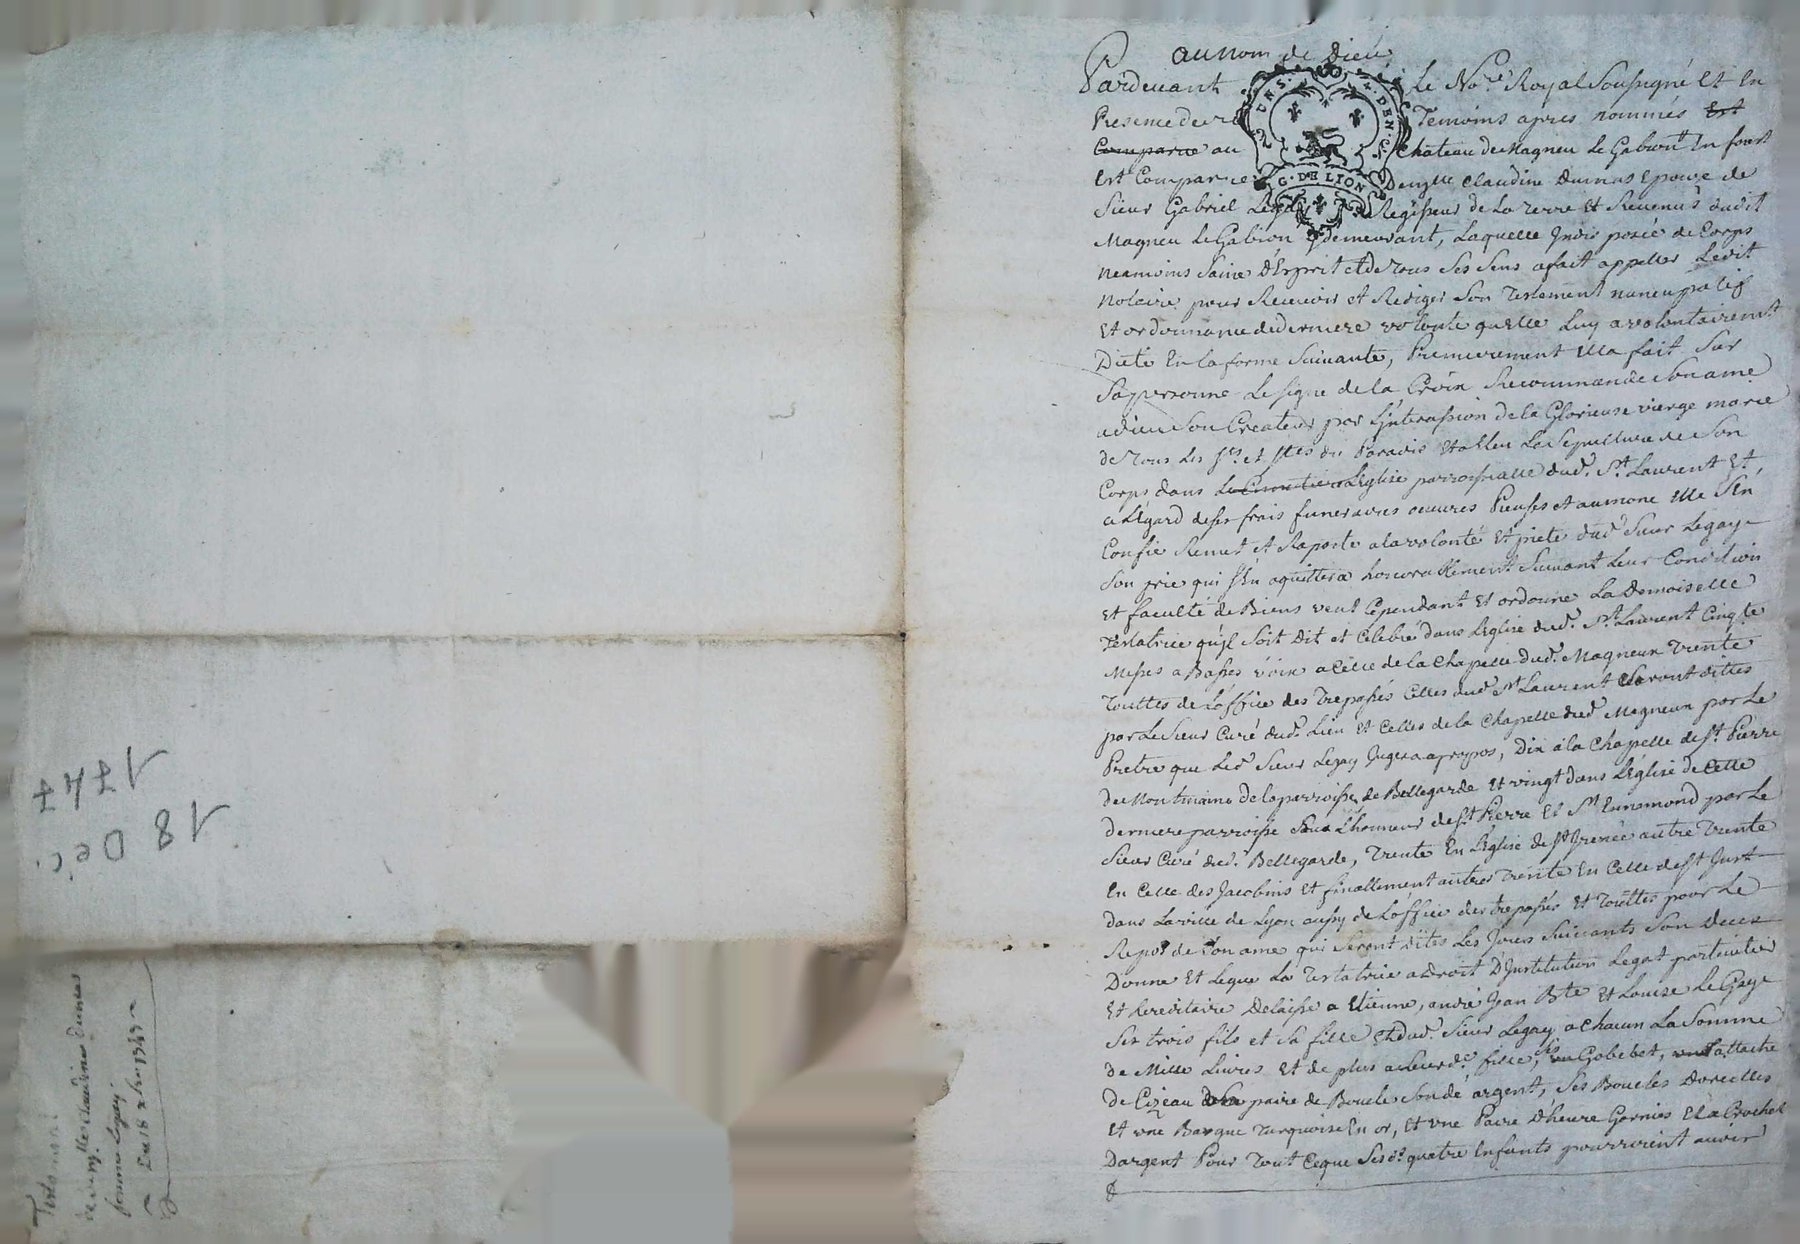 au nom de Dieu
Pardevant le No.re Royal Soussigné Et En
Presence de Temoins apres nommés Est
Comparue au Chateau de Magneu Le Gabion En forest
Est Comparue Demzlle Claudine Dumas Epouse de
Sieur Gabriel Legay Regisseur de La Terre Et Revenus dudit
Magneu Le Gabion y demeurant, Laquelle Indisposée de Corps
neamoins Saine d'Esprit et de Tous Ses Sens a fait appeller Ledit
Notaire pour Recevoir et Rediger Son Testement nuncupatif
Et ordonnance de derniere volonté quelle Luy a volontairemt
Dicté En la forme Suivante, Premierement Ella fait Sur
Sa personne Le Signe de la Croix Recommandé Son ame
a dieu Son Createur par L'intercession de la Glorieuse vierge marie
de Tous Les Sts. et Stes du Paradis Et a Eleu La Sepulture de Son
Corps dans Le Cimetiere L'Eglise parroissialle dud. St. Laurent Et,
a L'Egard de ses frais funeraires oeuvres Pieuses et aumone Elle S'En
Confie Remet et Raporte a la volonté Et pieté dud Sieur Legay
qui S'En aquittera honorablement Suivant Leur Condition
Et faculté de Biens veut Cependant Et ordonne La Demoiselle
Testatrice qu'jl Soit Dit et Celebré dans L'Eglise dud. St. Laurent Cinqte
Messes a Basses voix a Celle de la Chapelle dud. Magneux Trente
Touttes de L'office des Trepassés Celles dud St Laurent Seront dittes
par Le Sieur Curé dud. Lieu Et Celles de la Chapelle dud. Magneux par Le
Pretre que Led. Sieur Legay Jugera apropos, Dix a la Chapelle de St. Pierre
de Montmain de la parroisse de Bellegarde Et vingt dans L'Eglise de Cette
derniere parroisse Sous L'honneur de St Pierre Et St Ennemond par Le
Sieur Curé dud. Bellegarde, Trente En L'Eglise de St Irenée autre Trente
En Celle des Jacobins Et finallement autres Trente En Celle de St Just
dans La ville de Lyon aussy de L'office des trepassés Et Touttes pour Le
Repos de Son ame qui Seront dites Les Jours Suivants Son deces
Donne Et Legue La Testatrice a droit D'Institution Legat particulier
Et hereditaire Delaissé a Etienne, andré Jean Bte Et Louise Le Gay
Ses trois fils et Sa fille Et dud. Sieur Legay a Chacun La Somme
de Mille Livres Et de plus a Leurde. fille, Gobelet, attache
de Cizeau paire de Boucle Son dé argent, Ses Boucles doreilles
Et vne Bargue Turquoise En or, Et vne Paire D'heure Garnies Et a Crochet
Dargent Pour Tout Ceque Sesds. quatre Enfants pourroient auoir
2 SNS. 4 DEN.
G. DE LION
18 Dec.
1747
Testament
de demzlle Claudine Dumas
femme Legay
Du 18 xbre 1747